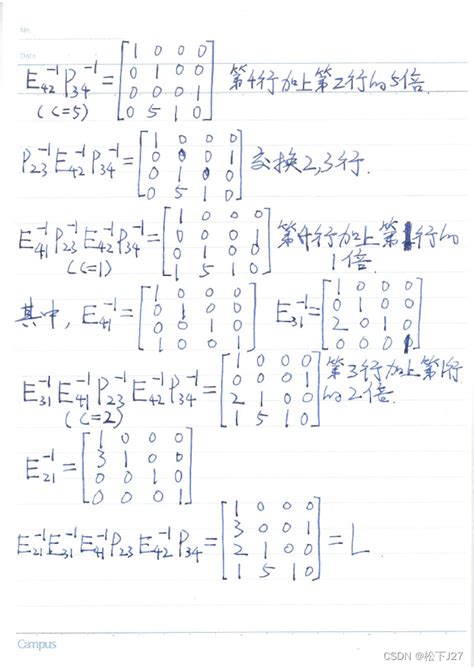 No.
Date
E₄₂⁻¹P₃₄⁻¹ = [1 0 0 0; 0 1 0 0; 0 0 0 1; 0 5 1 0] 第4行加上第2行的5倍.
(c=5)
P₂₃⁻¹E₄₂⁻¹P₃₄⁻¹ = [1 0 0 0; 0 0 0 1; 0 1 0 0; 0 5 1 0] 交换2,3行.
E₄₁⁻¹P₂₃⁻¹E₄₂⁻¹P₃₄⁻¹ = [1 0 0 0; 0 0 0 1; 0 1 0 0; 1 5 1 0] 第4行加上第1行的1倍.
(c=1)
其中, E₄₁⁻¹ = [1 0 0 0; 0 1 0 0; 0 0 1 0; 1 0 0 1] E₃₁⁻¹ = [1 0 0 0; 0 1 0 0; 2 0 1 0; 0 0 0 1]
E₃₁⁻¹E₄₁⁻¹P₂₃⁻¹E₄₂⁻¹P₃₄⁻¹ = [1 0 0 0; 0 0 0 1; 2 1 0 0; 1 5 1 0] 第3行加上第1行的2倍.
(c=2)
E₂₁⁻¹ = [1 0 0 0; 3 1 0 0; 0 0 1 0; 0 0 0 1]
E₂₁⁻¹E₃₁⁻¹E₄₁⁻¹P₂₃⁻¹E₄₂⁻¹P₃₄⁻¹ = [1 0 0 0; 3 0 0 1; 2 1 0 0; 1 5 1 0] = L
Campus
CSDN @松下J27